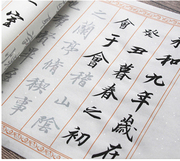 和九年歲在
癸丑暮春之初
會于會稽山陰
之蘭亭脩稧事